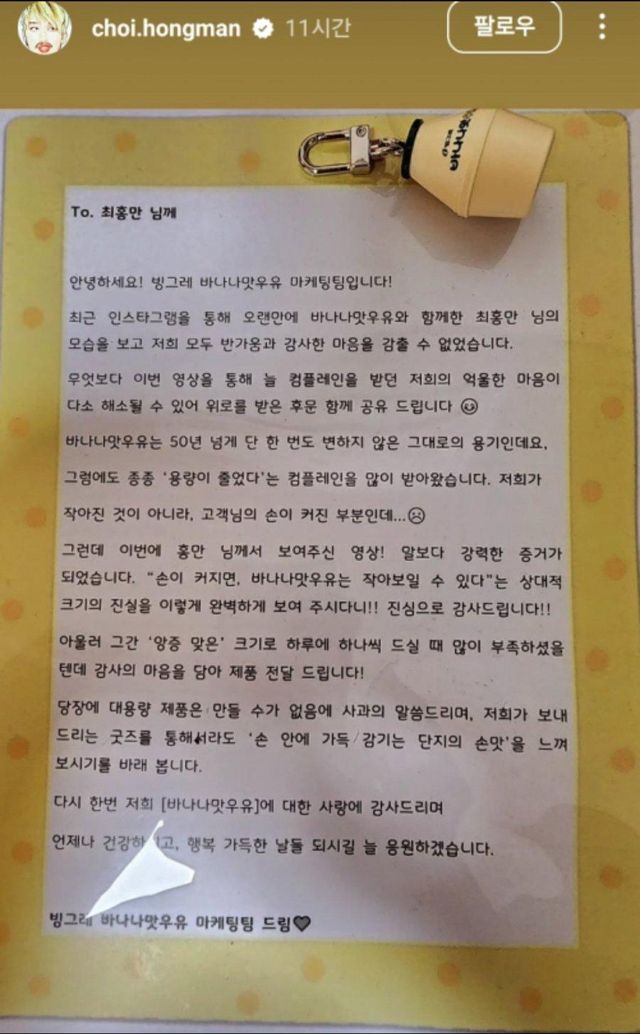 choi.hongman 11시간
팔로우
바나나맛
To. 최홍만 님께
안녕하세요! 빙그레 바나나맛우유 마케팅팀입니다!
최근 인스타그램을 통해 오랜만에 바나나맛우유와 함께한 최홍만 님의
모습을 보고 저희 모두 반가움과 감사한 마음을 감출 수 없었습니다.
무엇보다 이번 영상을 통해 늘 컴플레인을 받던 저희의 억울한 마음이
다소 해소될 수 있어 위로를 받은 후문 함께 공유 드립니다 ☺
바나나맛우유는 50년 넘게 단 한 번도 변하지 않은 그대로의 용기인데요,
그럼에도 종종 ‘용량이 줄었다’는 컴플레인을 많이 받아왔습니다. 저희가
작아진 것이 아니라, 고객님의 손이 커진 부분인데...☹
그런데 이번에 홍만 님께서 보여주신 영상! 말보다 강력한 증거가
되었습니다. “손이 커지면, 바나나맛우유는 작아보일 수 있다”는 상대적
크기의 진실을 이렇게 완벽하게 보여 주시다니!! 진심으로 감사드립니다!!
아울러 그간 ‘앙증 맞은’ 크기로 하루에 하나씩 드실 때 많이 부족하셨을
텐데 감사의 마음을 담아 제품 전달 드립니다!
당장에 대용량 제품은 만들 수가 없음에 사과의 말씀드리며, 저희가 보내
드리는 굿즈를 통해서라도 ‘손 안에 가득 감기는 단지의 손맛’을 느껴
보시기를 바래 봅니다.
다시 한번 저희 [바나나맛우유]에 대한 사랑에 감사드리며
언제나 행복 가득한 날들 되시길 늘 응원하겠습니다.
빙그레 바나나맛우유 마케팅팀 드림♥